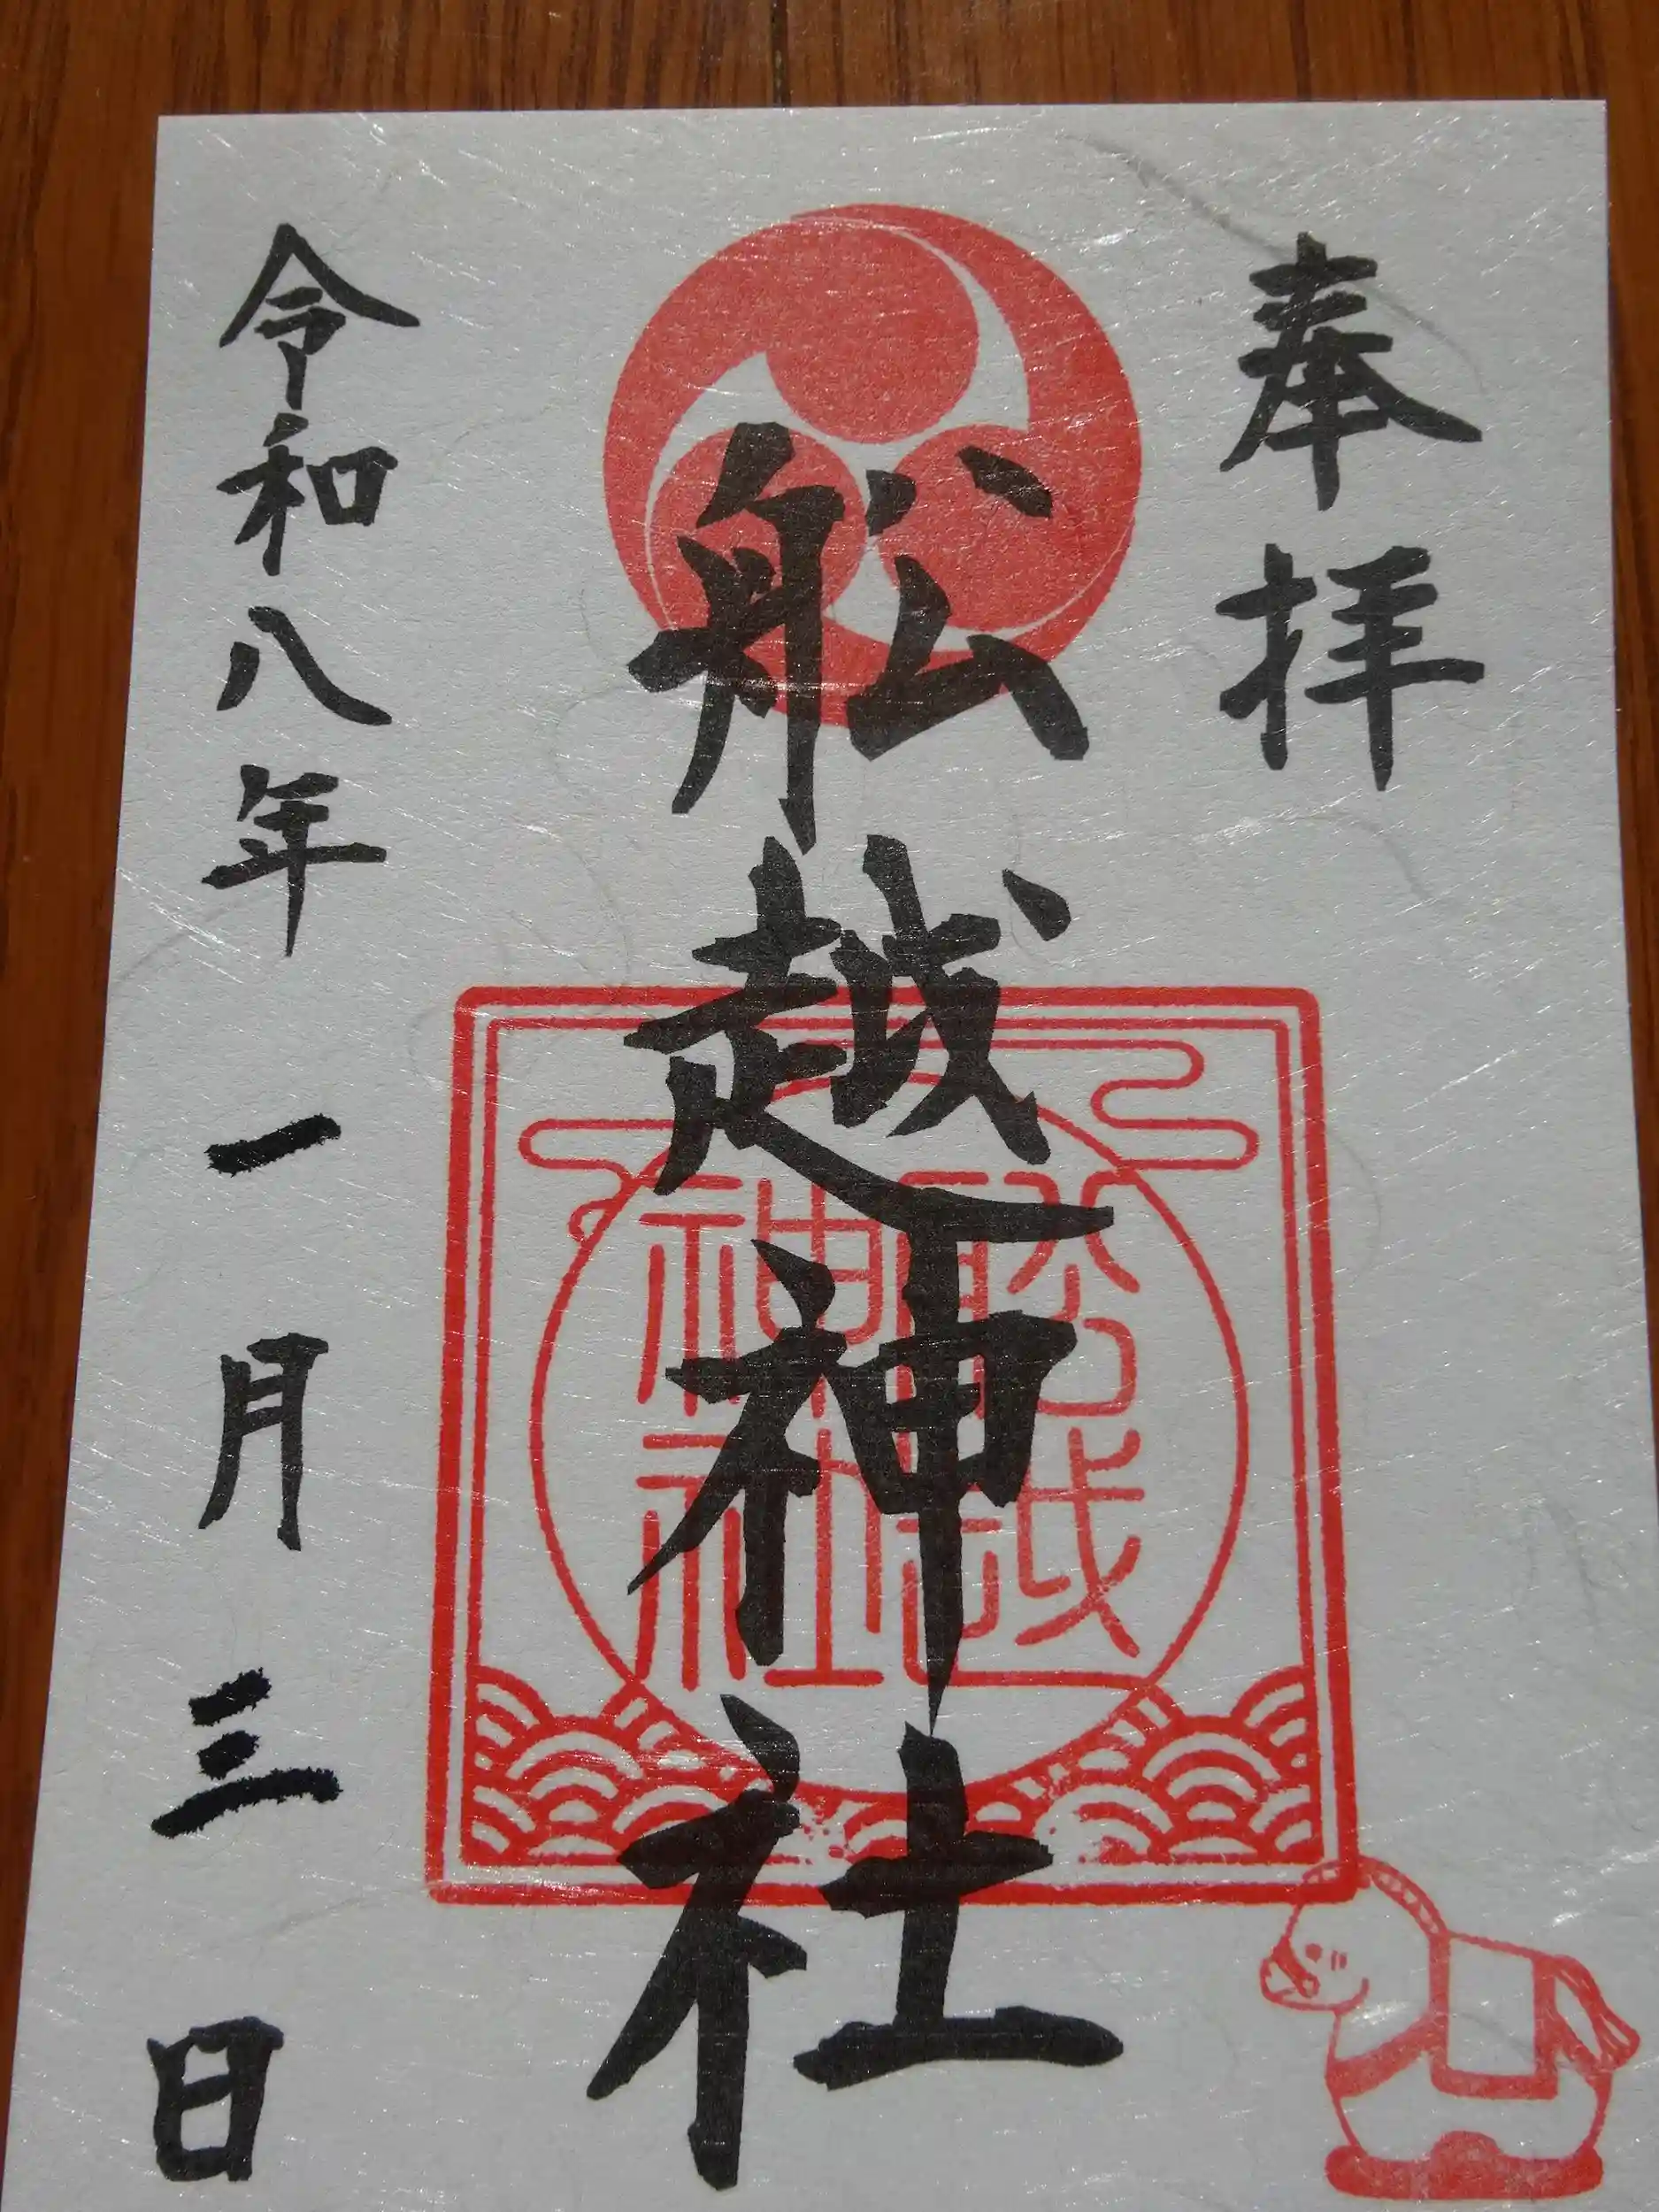 奉拝
舩越神社
船越
神社
令和八年一月三日